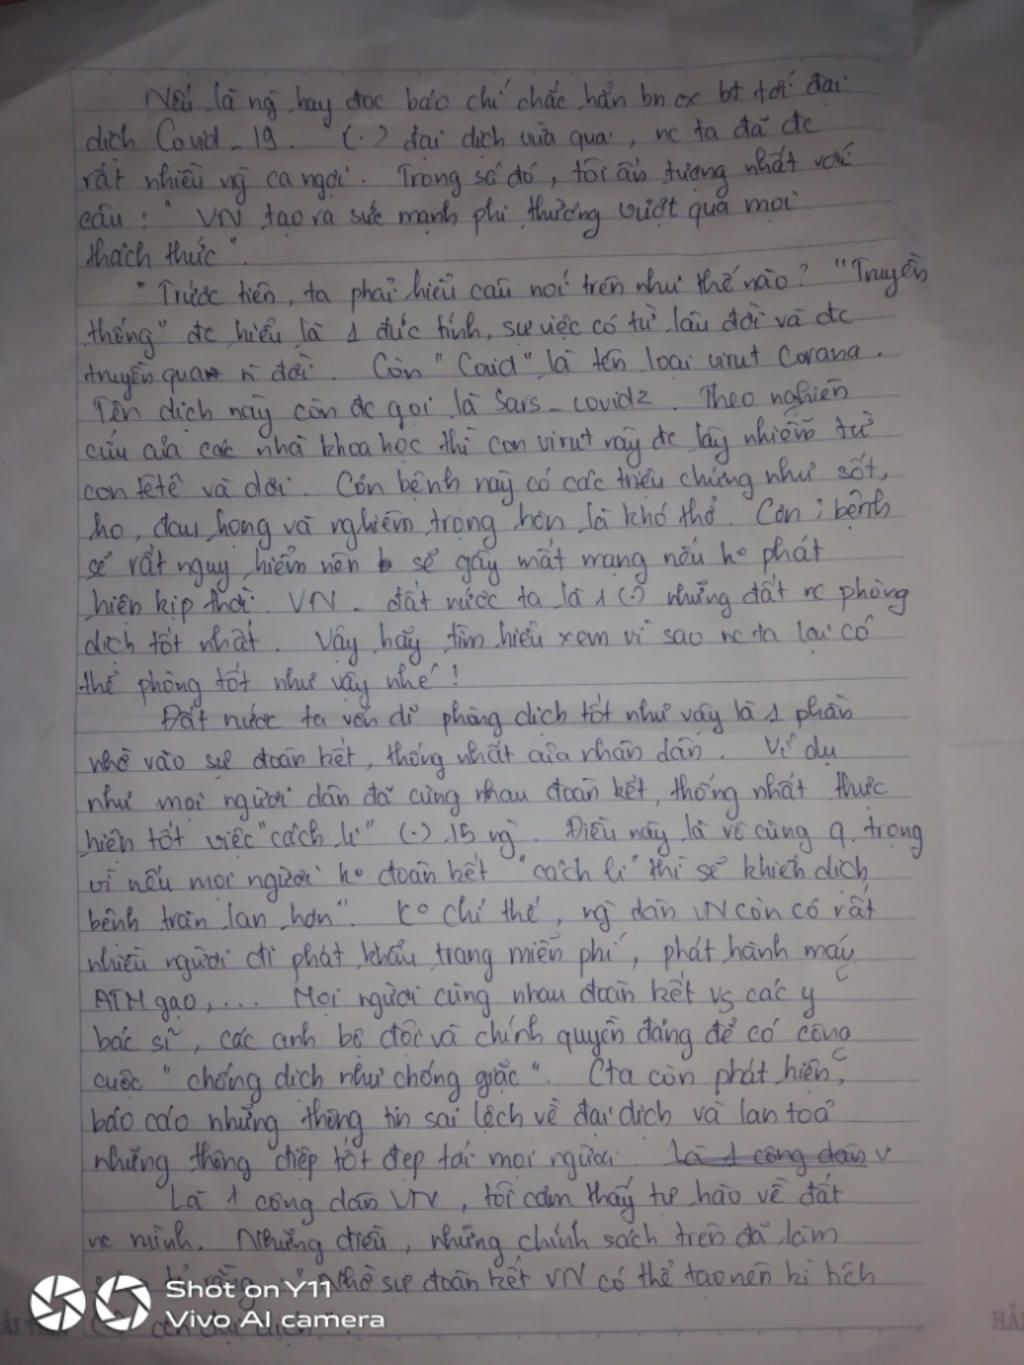 Nếu là ng hay đọc báo chí chắc hẳn bn cx bt tới đại
dịch Covid_19. (.) đại dịch vừa qua, nc ta đã đc
rất nhiều ng ca ngợi. Trong số đó, tôi ấn tượng nhất với
câu: " VN tạo ra sức mạnh phi thường vượt qua mọi
thách thức".
"Trước tiên, ta phải hiểu câu nói trên như thế nào? "Truyền
thống" đc hiểu là 1 đức tính, sự việc có từ lâu đời và đc
truyền qua n đời. Còn "Covid" là tên loại virut Corana.
Tên dịch này còn đc gọi là Sars_covid2. Theo nghiên
cứu của các nhà khoa học thì con virut này đc lây nhiễm từ
con têtê và dơi. Cón bệnh này có các triệu chứng như sốt,
ho, đau họng và nghiêm trọng hơn là khó thở. Cơn bệnh
sẽ rất nguy hiểm nên sẽ gây mất mạng nếu ko phát
hiện kịp thời. VN _ đất nước ta là 1 (.) những đất nc phòng
dịch tốt nhất. Vậy hãy tìm hiểu xem vì sao nc ta lại có
thể phòng tốt như vậy nhé!
Đất nước ta vốn dĩ phòng dịch tốt như vậy là 1 phần
nhờ vào sự đoàn kết, thống nhất của nhân dân. Ví dụ
như mọi người dân đã cùng nhau đoàn kết, thống nhất thực
hiện tốt việc "cách li" (.) 15 ng. Điều này là vô cùng q.trọng
vì nếu mọi người ko đoàn kết "cách li" thì sẽ khiến dịch
bệnh tràn lan hơn". Ko chỉ thế, ng dân VN còn có rất
nhiều người đi phát khẩu trang miễn phí, phát hành máy
ATM gạo,... Mọi người cùng nhau đoàn kết vs các y
bác sĩ, các anh bộ đội và chính quyền đảng để có công
cuộc " chống dịch như chống giặc". Cta còn phát hiện,
báo cáo những thông tin sai lệch về đại dịch và lan toả
những thông điệp tốt đẹp tới mọi người. là 1 công dân v
Là 1 công dân VN, tôi cảm thấy tự hào về đất
nc mình. Những điều, những chính sách trên đã làm
nhờ sự đoàn kết VN có thể tạo nên kì tích
Shot on Y11
Vivo AI camera